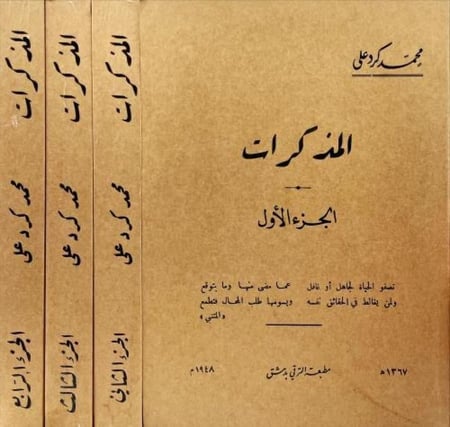 محمد كرد علي
المذكرات
الجزء الأول
تصفو الحياة لجاهل أو غافل عما مضى منها وما يتوقع
ولمن يغالط في الحقائق نفسه ويسومها طلب المحال فتطمع
«المتنبي»
١٣٦٧ھ مطبعة الترقي بدمشق ١٩٤٨م
المذكرات محمد كرد علي الجزء الثاني
المذكرات محمد كرد علي الجزء الثالث
المذكرات محمد كرد علي الجزء الرابع